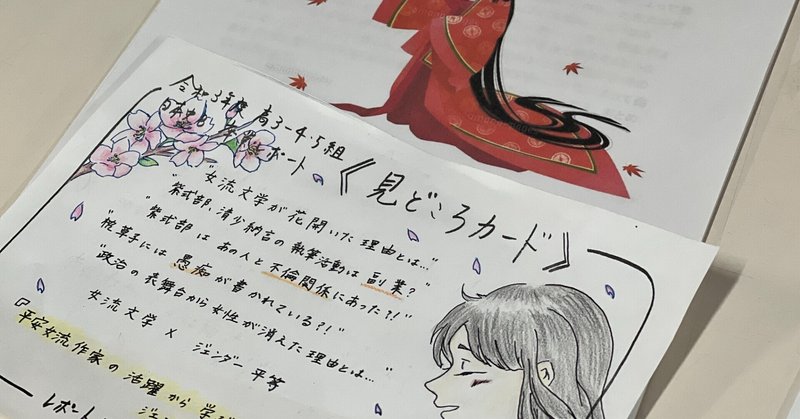 令和3年度 高3-4・5組
日本史B 卒業レポート
《見どころカード》
"女流文学が花開いた理由とは…"
"紫式部、清少納言の執筆活動は副業?"
"紫式部はあの人と不倫関係にあった?!"
"枕草子には愚痴が書かれている?!"
"政治の表舞台から女性が消えた理由とは…"
女流文学 × ジェンダー平等
『平安女流作家の活躍から学
ジェ
レポート